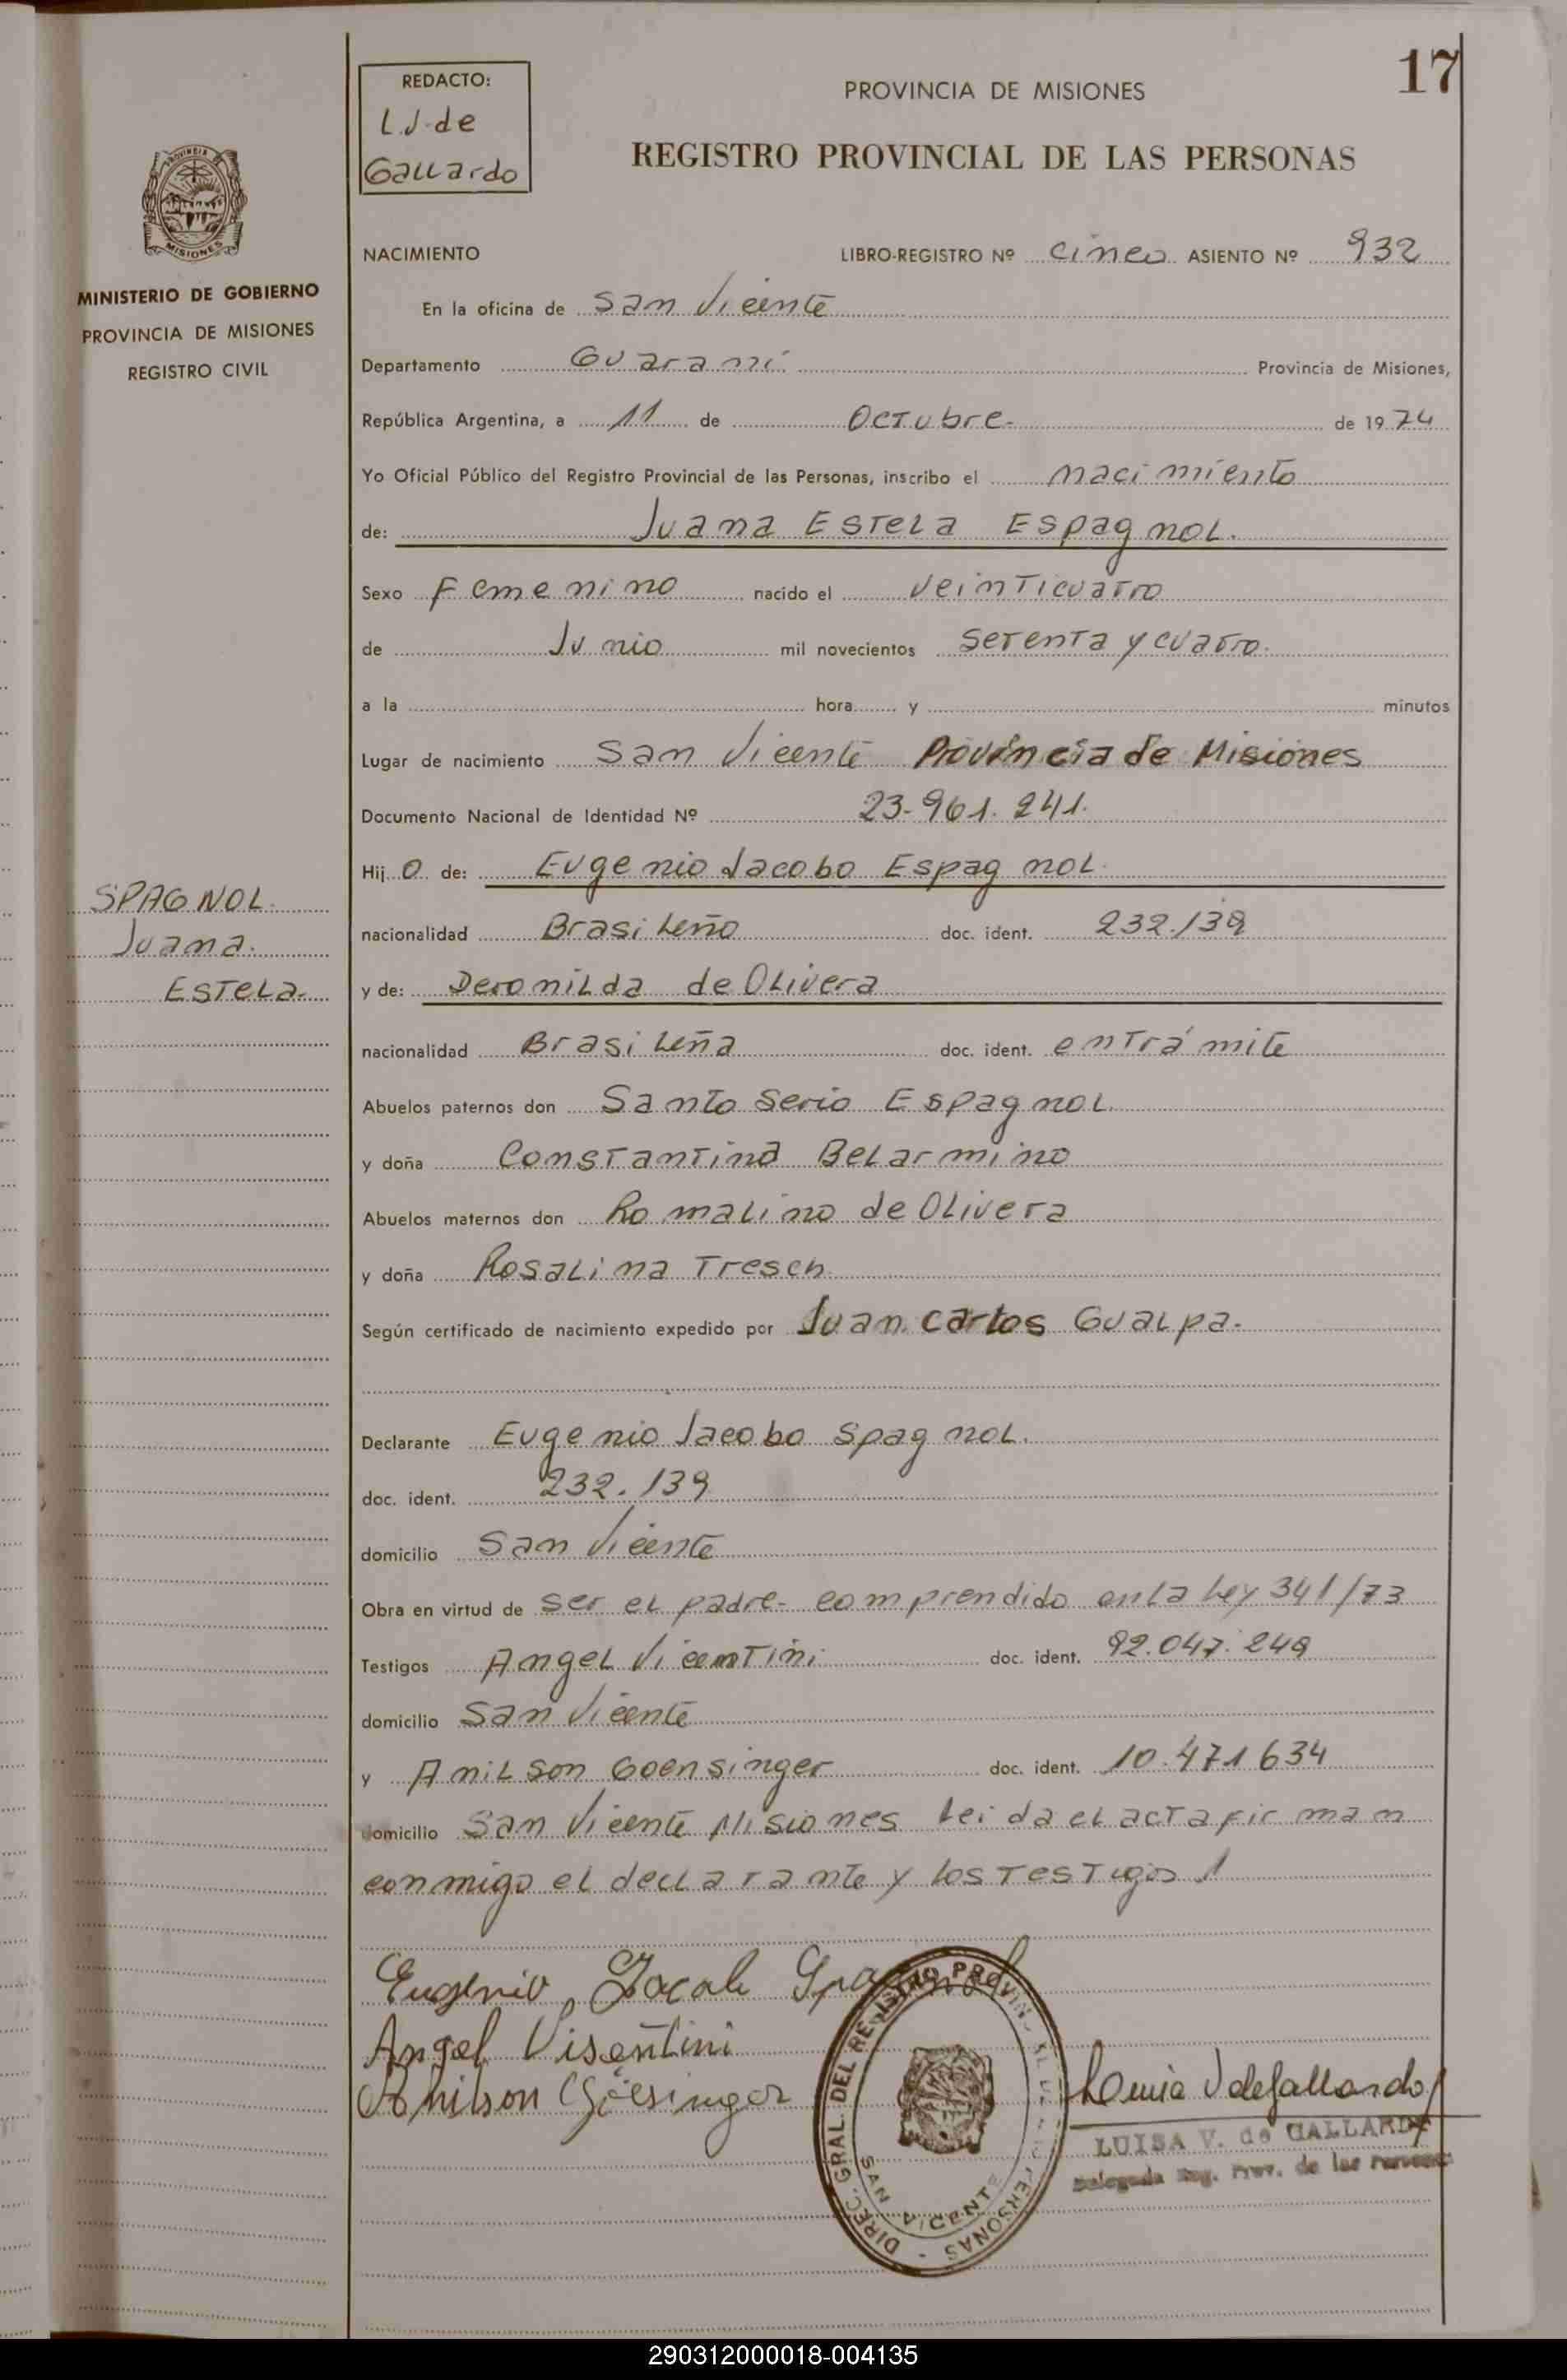 17
REDACTO:
L.J. de
Gallardo
PROVINCIA DE MISIONES
REGISTRO PROVINCIAL DE LAS PERSONAS
PROVINCIA
MISIONES
MINISTERIO DE GOBIERNO
PROVINCIA DE MISIONES
REGISTRO CIVIL
SPAGNOL.
Juana.
Estela.
NACIMIENTO LIBRO-REGISTRO Nº cinco ASIENTO Nº 932
En la oficina de San Vicente
Departamento Guaraní Provincia de Misiones,
República Argentina, a 11 de Octubre- de 1974
Yo Oficial Público del Registro Provincial de las Personas, inscribo el nacimiento
de: Juana Estela Espagnol.
Sexo Femenino nacido el veinticuatro
de Junio mil novecientos setenta y cuatro.
a la hora y minutos
Lugar de nacimiento San Vicente Provincia de Misiones
Documento Nacional de Identidad Nº 23-961.241.
Hij o de: Eugenio Jacobo Espagnol.
nacionalidad Brasileño doc. ident. 232.139
y de: Deronilda de Olivera
nacionalidad Brasileña doc. ident. en trámite
Abuelos paternos don Santo Serio Espagnol.
y doña Constantina Belarmino
Abuelos maternos don Romalino de Olivera
y doña Rosalina Tresch
Según certificado de nacimiento expedido por Juan Carlos Gualpa.
Declarante Eugenio Jacobo Spagnol.
doc. ident. 232.139
domicilio San Vicente
Obra en virtud de ser el padre- comprendido en la Ley 341/73
Testigos Angel Vicentini doc. ident. 92.047.249
domicilio San Vicente
y Anilson Goensinger doc. ident. 10.471634
domicilio San Vicente Misiones Leida el acta firman
conmigo el declarante y los testigos
Eugenio Jacob Spagnol
Angel Visentini
DIREC. GRAL. DEL REGISTRO PROVIN PERSONAS -
SAN VICENTE
LUISA V. de GALLARDO
Delegada Reg. Prov. de las Personas
290312000018-004135